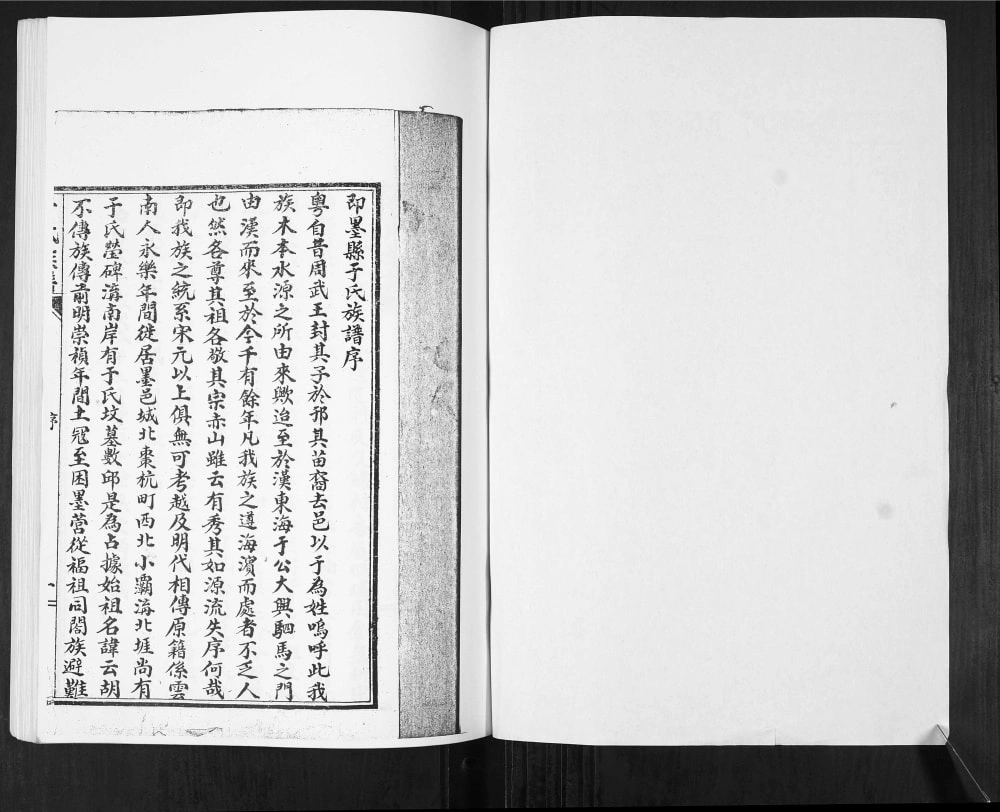 即墨縣于氏族譜序
粵自昔周武王封其子於邘其苗裔去邑以于為姓嗚呼此我
族木本水源之所由來歟迨至於漢東海于公大興駟馬之門
由漢而來至於今千有餘年凡我族之遵海濵而處者不乏人
也然各尊其祖各敬其宗赤山雖云有秀其如源流失序何哉
即我族之統系宋元以上俱無可考越及明代相傳原籍係雲
南人永樂年間徙居墨邑城北棗杭町西北小霸溝北堐尚有
于氏塋碑溝南岸有于氏坟墓數邱是為占據始祖名諱云胡
不傳族傳前明崇禎年間土冦至困墨營從福祖同闔族避難
氏族譜
序
一